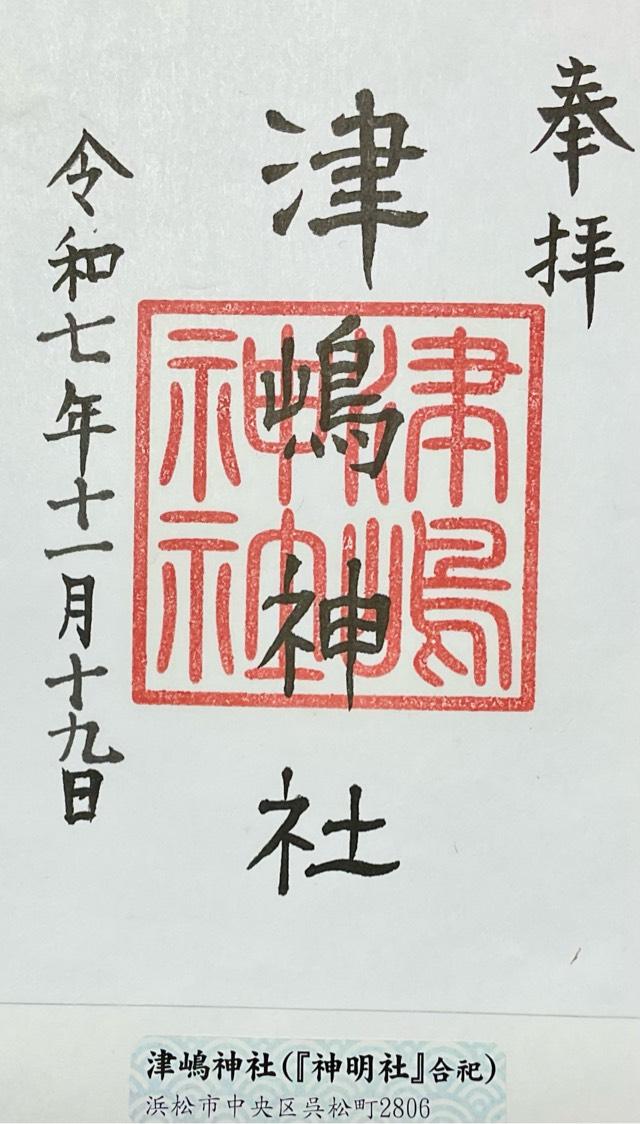 奉拝
津嶋神社
津嶋神社
令和七年十一月十九日
津嶋神社(『神明社』合祀)
浜松市中央区呉松町2806